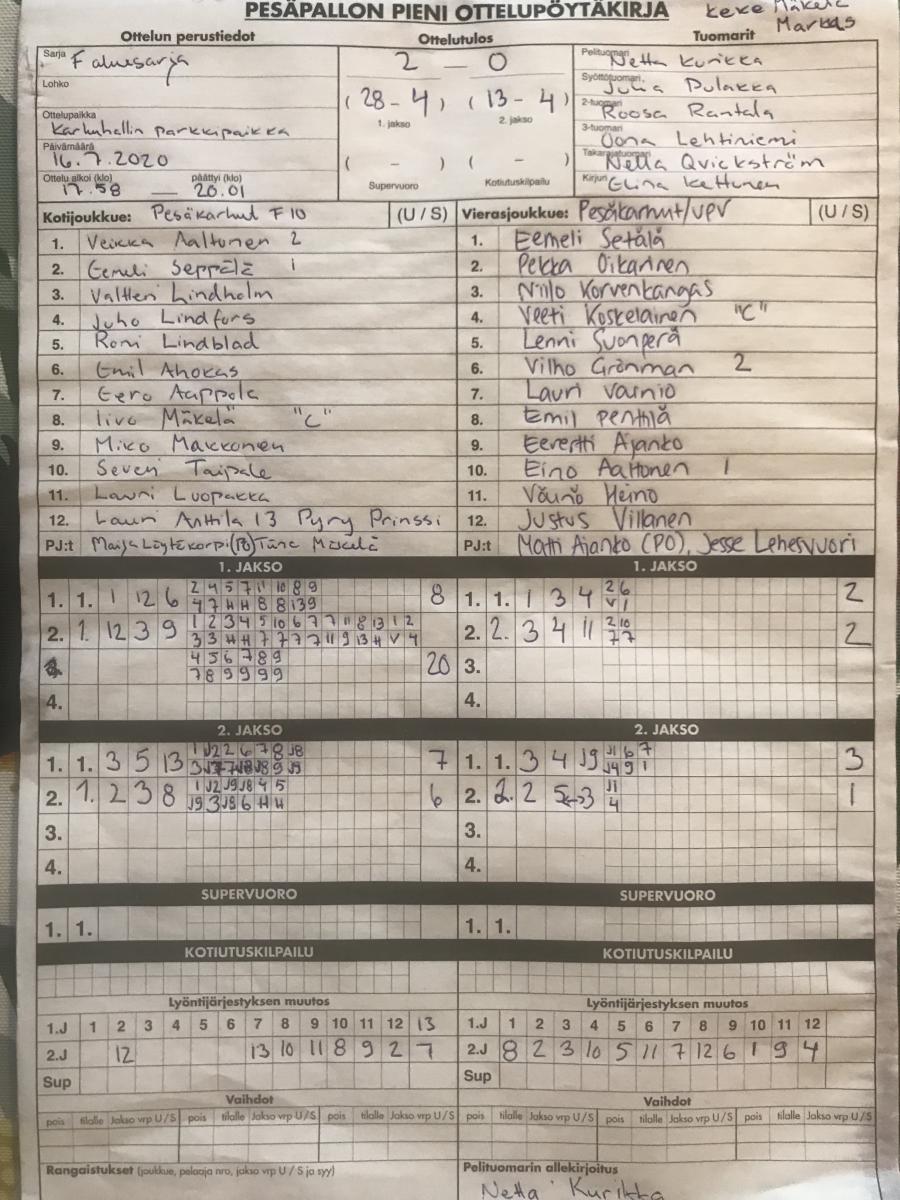 PESÄPALLON PIENI OTTELUPÖYTÄKIRJA
Keke Mäkelä
Markas
Ottelun perustiedot
Ottelutulos
Tuomarit
Sarja Faluesarja
2 — 0
Pelituomari Netta Kurikka
Lohko
Syöttötuomari Julia Pulakka
(28 - 4) (13 - 4)
1. jakso 2. jakso
Ottelupaikka
Karhuhallin parkkipaikka
2-tuomari Roosa Rantala
3-tuomari Oona Lehtiniemi
Päivämäärä
16.7.2020
( - ) ( - )
Takarajatuomari Nella Qvickström
Ottelu alkoi (klo) päättyi (klo)
17.58 — 20.01
Supervuoro Kotiutuskilpailu
Kirjuri Elina Kettunen
Kotijoukkue: Pesäkarhut F10 (U / S)
Vierasjoukkue: Pesäkarhut/UPV (U / S)
1. Veikka Aaltonen 2
1. Eemeli Setälä
2. Eemeli Seppälä 1
2. Pekka Oikarinen
3. Valtteri Lindholm
3. Niilo Korvenkangas
4. Juho Lindfors
4. Veeti Koskelainen "C"
5. Roni Lindblad
5. Lenni Suonperä
6. Emil Ahokas
6. Vilho Grönman 2
7. Eero Aappola
7. Lauri Vainio
8. Iivo Mäkelä "C"
8. Emil Penttilä
9. Miko Makkonen
9. Eevertti Ajanko
10. Severi Taipale
10. Eino Aaltonen 1
11. Lauri Luopakka
11. Väinö Heino
12. Lauri Anttila 13 Pyry Prinssi
12. Justus Villanen
PJ:t Maija Löytökorpi (PO) Tane Mäkelä
PJ:t Matti Ajanko (PO), Jesse Lehesvuori
1. JAKSO
1. JAKSO
1. 1. 1 12 6 2 4 5 7 11 10 8 9 8
4 7 H H 8 8 13 9
1. 1. 1 3 4 2 6 2
V 1
2. 1. 12 3 9 1 2 3 4 5 10 6 7 7 11 8 13 1 2
3 3 H H 7 7 7 7 11 9 13 H V 4
2. 2. 3 4 11 2 10 2
7 7
4 5 6 7 8 9 20
7 8 9 9 9 9
3.
4.
4.
2. JAKSO
2. JAKSO
1. 1. 3 5 13 1 J2 2 6 7 8 J8 7
1. 1. 3 4 J9 J1 6 7 3
J4 9 1
2. 1. 2 3 8 1 J2 J9 J8 4 5 6
J9 3 J8 6 H H
2. 2. 2 5↔3 J1 1
4
3.
3.
4.
4.
SUPERVUORO
SUPERVUORO
1. 1.
1. 1.
KOTIUTUSKILPAILU
KOTIUTUSKILPAILU
Lyöntijärjestyksen muutos
Lyöntijärjestyksen muutos
1.J 1 2 3 4 5 6 7 8 9 10 11 12 13
1.J 1 2 3 4 5 6 7 8 9 10 11 12
2.J 12 13 10 11 8 9 2 7
2.J 8 2 3 10 5 11 7 12 6 1 9 4
Sup
Sup
Vaihdot
Vaihdot
pois tilalle Jakso vrp U / S pois tilalle Jakso vrp U / S pois tilalle Jakso vrp U / S
pois tilalle Jakso vrp U / S pois tilalle Jakso vrp U / S pois tilalle Jakso vrp U / S
Rangaistukset (joukkue, pelaaja nro, jakso vrp U / S ja syy)
Pelituomarin allekirjoitus
Netta Kurikka